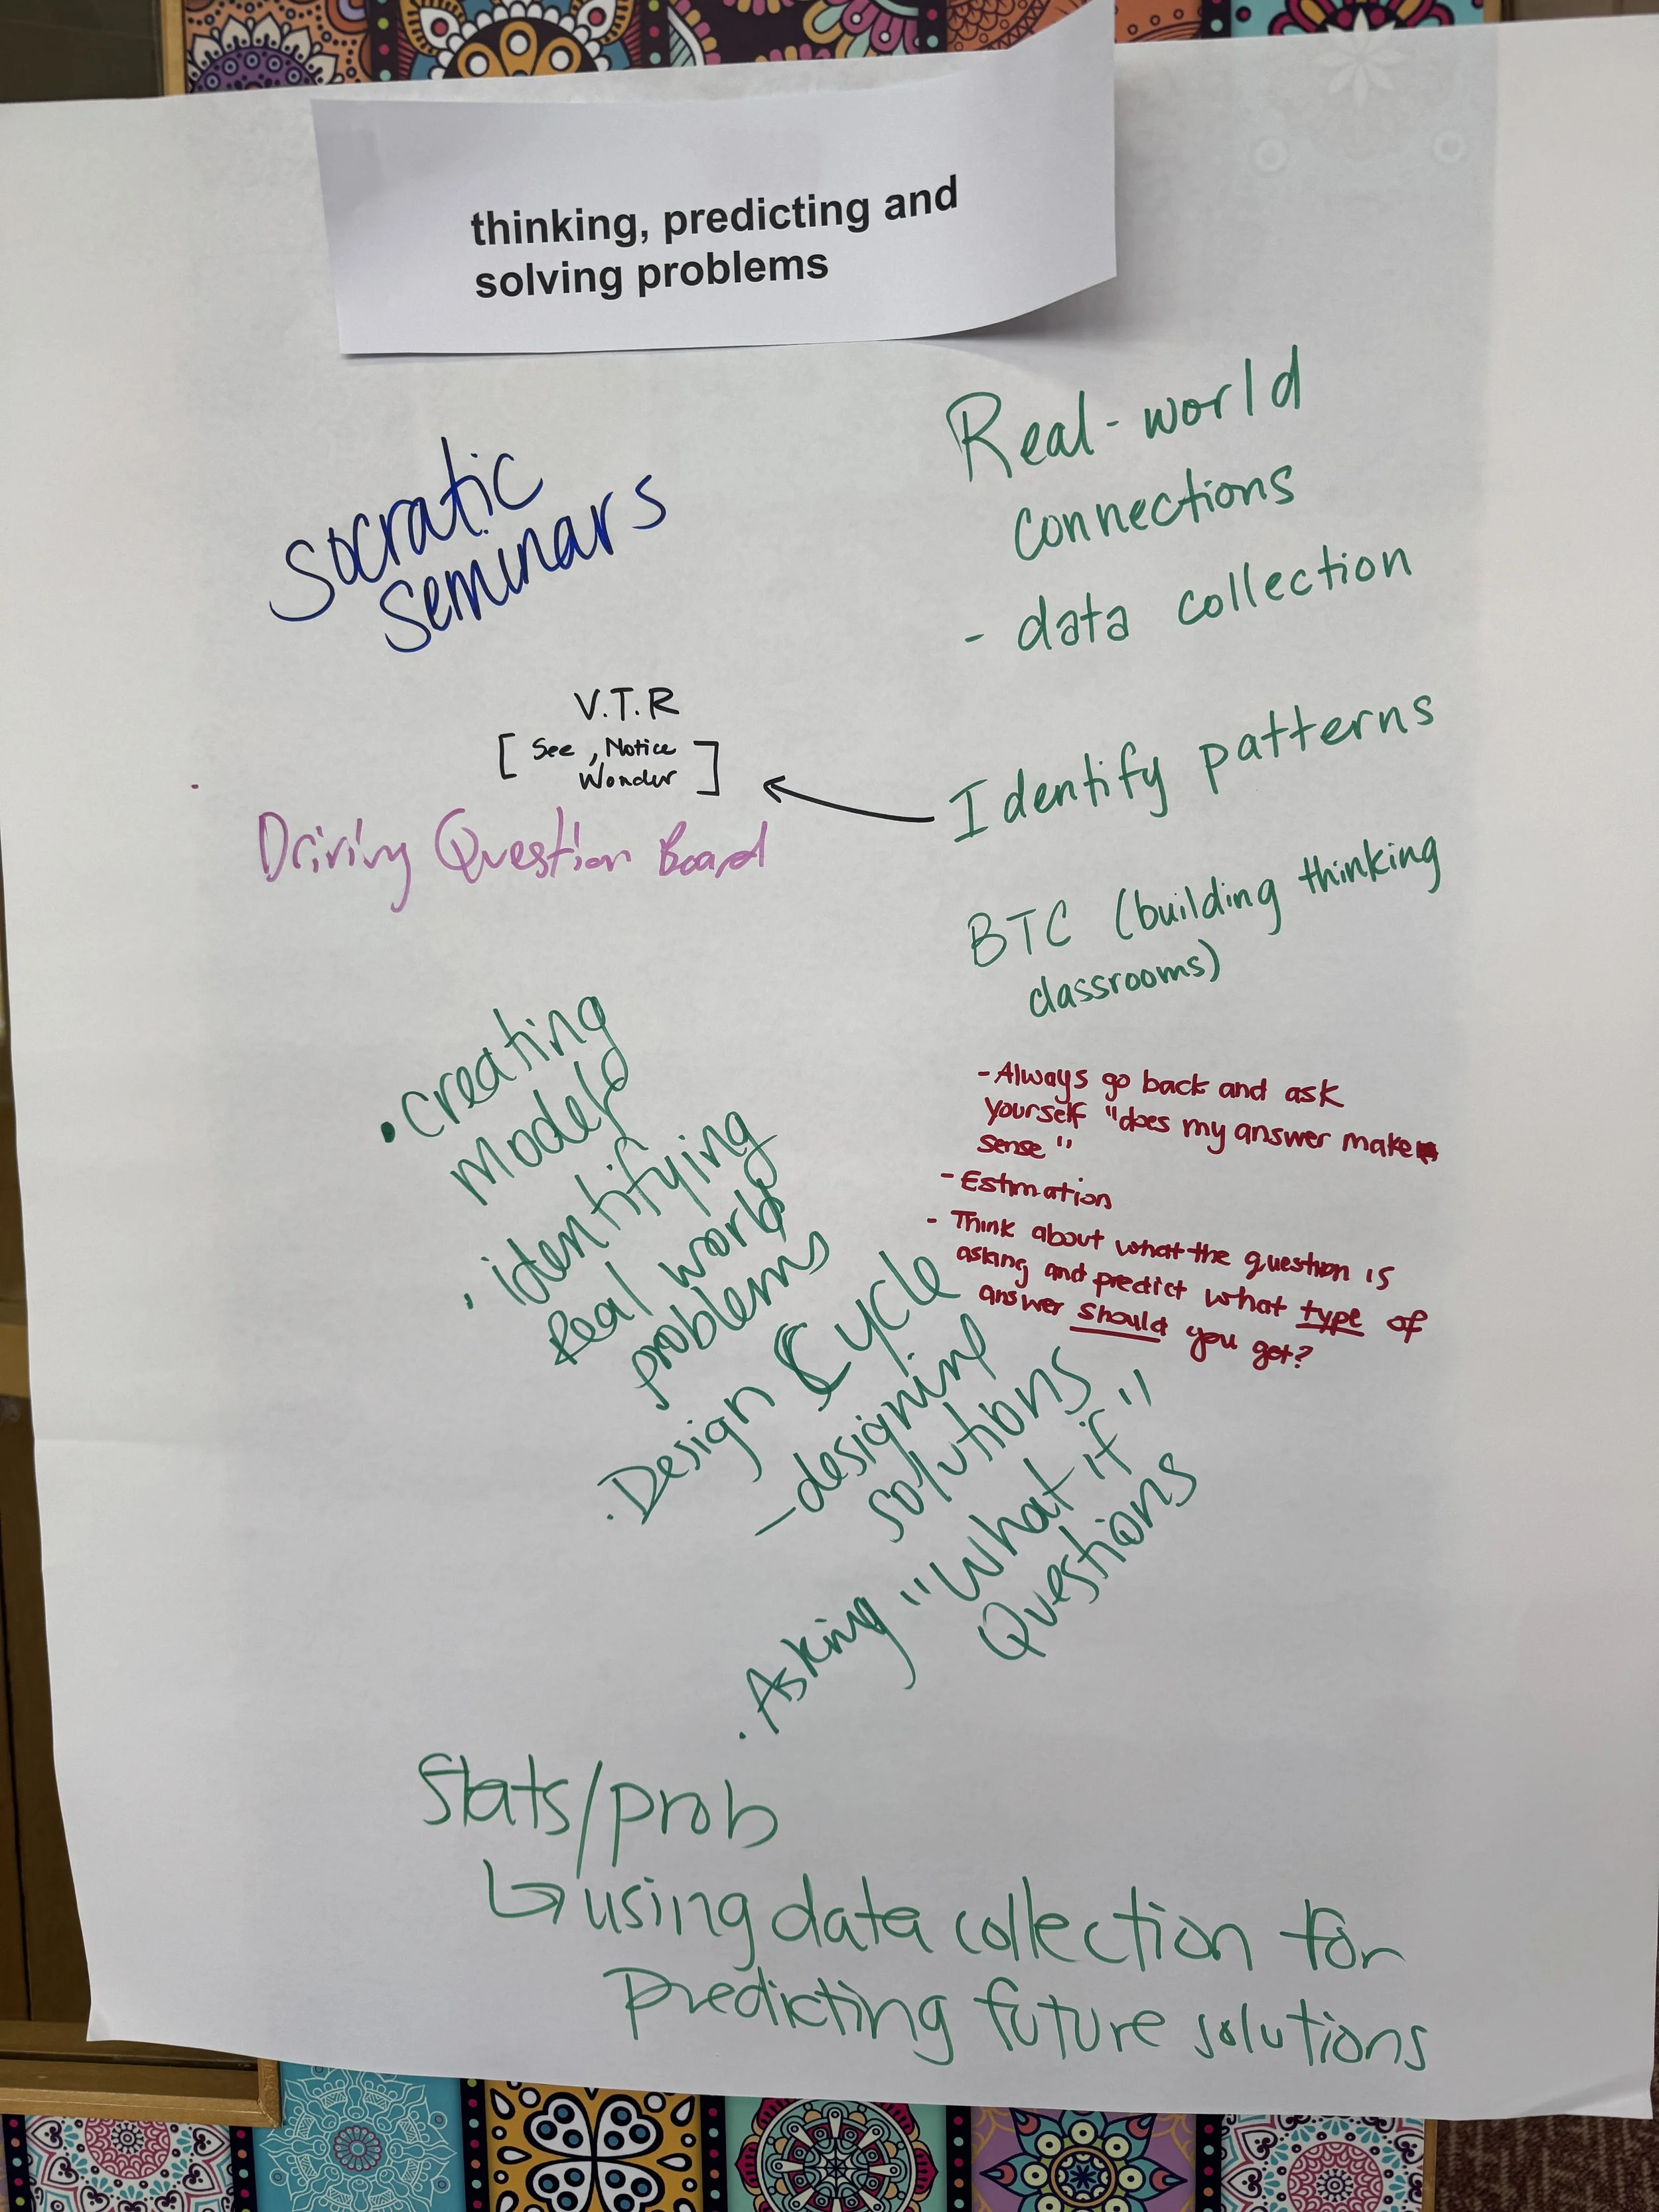 thinking, predicting and
solving problems
Socratic
Seminars
Real-world
connections
- data collection
V.T.R
[ See , Notice
Wonder ]
Identify patterns
Driving Question Board
BTC (building thinking
classrooms)
• creating
models
• identifying
Real world
problems
• Design Cycle
- designing
solutions
• Asking "What if"
Questions
- Always go back and ask
yourself "does my answer make
sense"
- Estimation
- Think about what the question is
asking and predict what type of
answer should you get?
Stats/prob
↳ using data collection for
predicting future solutions